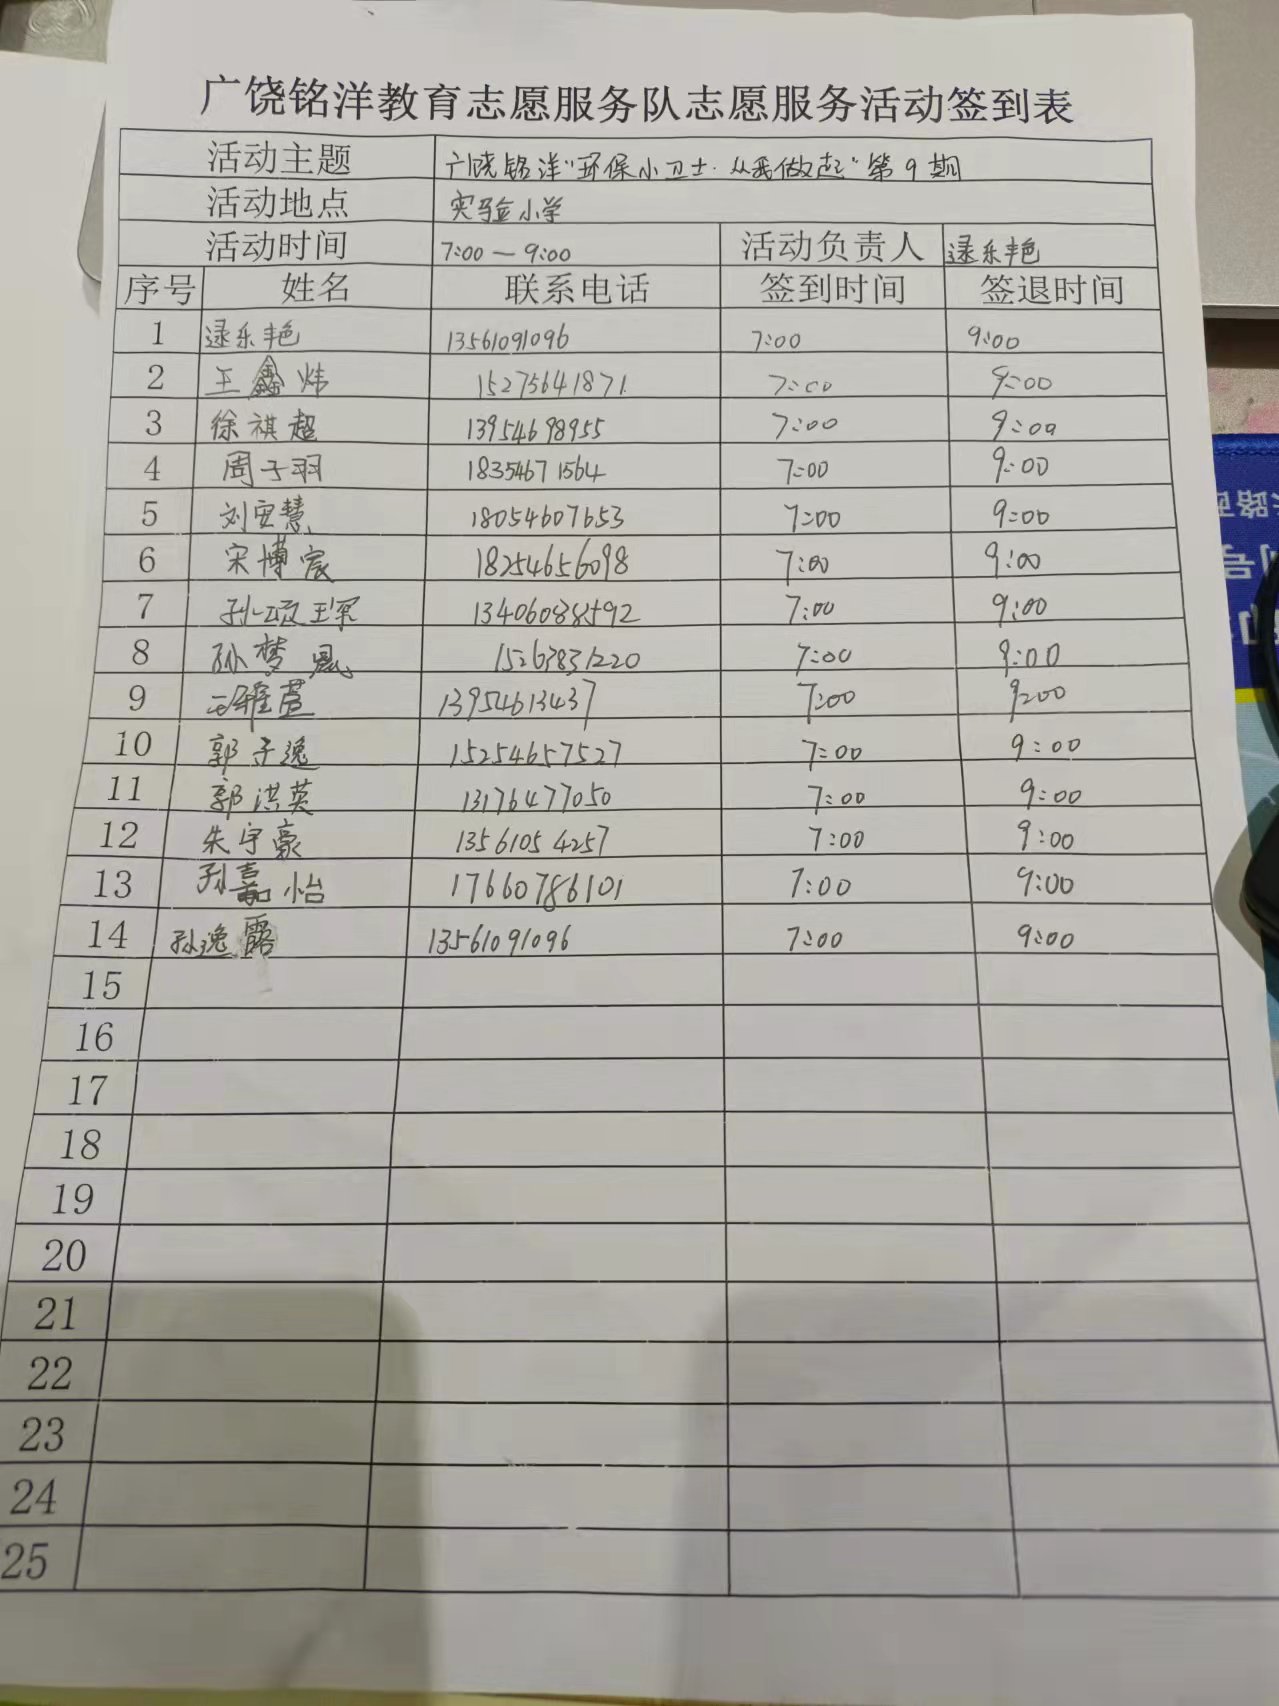 广饶铭洋教育志愿服务队志愿服务活动签到表
活动主题 广饶铭洋“环保小卫士·从我做起”第9期
活动地点 实验小学
活动时间 7:00—9:00 活动负责人 逯乐艳
序号 姓名 联系电话 签到时间 签退时间
1 逯乐艳 13561091096 7:00 9:00
2 王鑫炜 15275641871 7:00 9:00
3 徐祺超 13954698955 7:00 9:00
4 周子羽 18354671564 7:00 9:00
5 刘安慧 18054607653 7:00 9:00
6 宋博宸 18254656098 7:00 9:00
7 孙 13406088592 7:00 9:00
8 孙梦 15263831220 7:00 9:00
9 王雅萱 13954613437 7:00 9:00
10 郭子逸 15254657527 7:00 9:00
11 郭洪英 13176477050 7:00 9:00
12 朱宇豪 13561054257 7:00 9:00
13 孙嘉怡 17660786101 7:00 9:00
14 孙逸露 13561091096 7:00 9:00
15
16
17
18
19
20
21
22
23
24
25